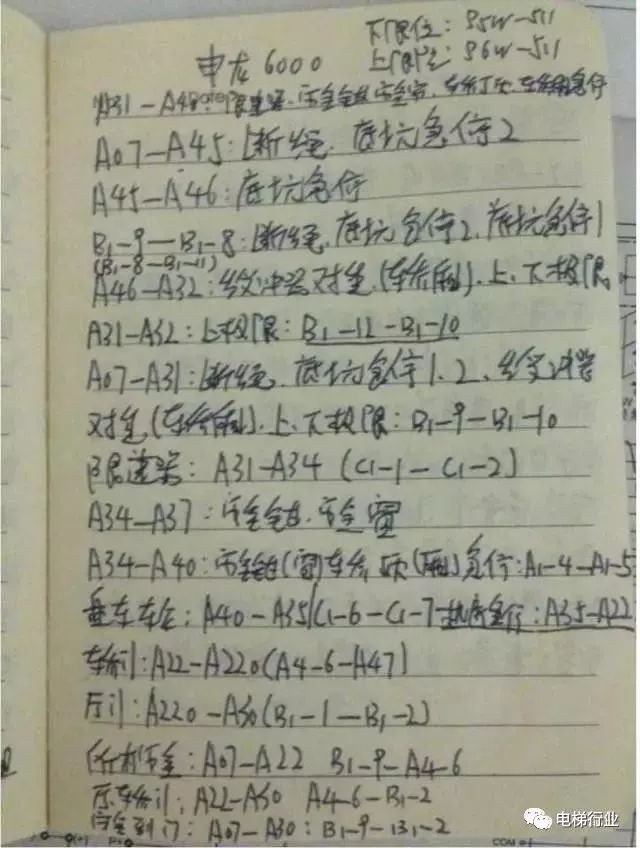 下限位: 95W-511
申龙 6000 上限位: 96W-511
A31-A40: 限速器、安全钳、安全窗、轿顶、轿厢急停
A07-A45: 断绳、底坑急停2
A45-A46: 底坑急停
B1-9-B1-8: 断绳、底坑急停2、底坑急停1
(B1-8-B1-11)
A46-A32: 缓冲器对重(轿厢)、上、下极限
A31-A32: 上极限: B1-12-B1-10
A07-A31: 断绳、底坑急停1、2、缓冲器
对重(轿厢)、上、下极限: B1-9-B1-10
限速器: A31-A34 (C1-1-C1-2)
A34-A37: 安全钳、安全窗
A34-A40: 安全钳(窗)轿顶(厢)急停: A1-4-A1-5
盘车轮: A40-A35/C1-6-C1-7 机房急停: A35-A22
轿门: A22-A220(A4-6-A47)
厅门: A220-A30(B1-1-B1-2)
所有安全: A07-A22 B1-9-A4-6
厅轿门: A22-A30 A4-6-B1-2
安全到门: A07-A30: B1-9-B1-2
COM
电梯行业